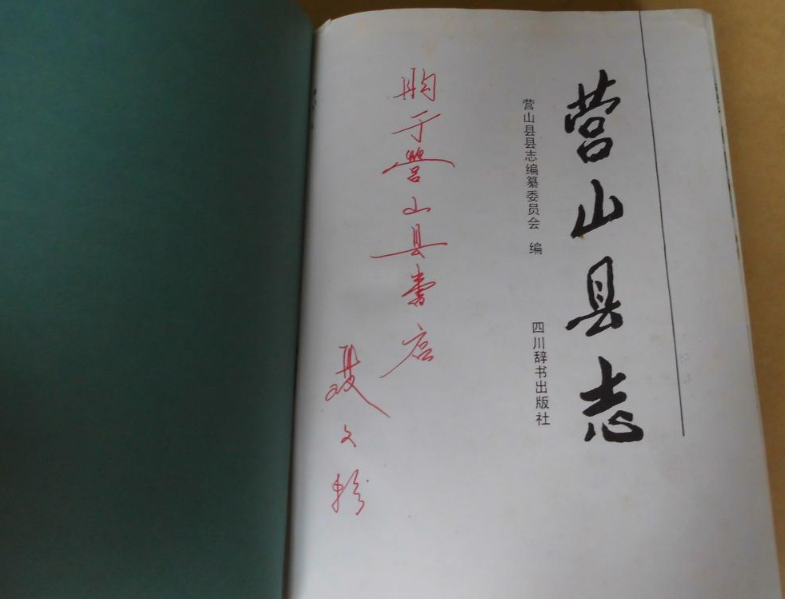 营山县志
营山县县志编纂委员会 编
四川辞书出版社
购于营山县書店
聂文